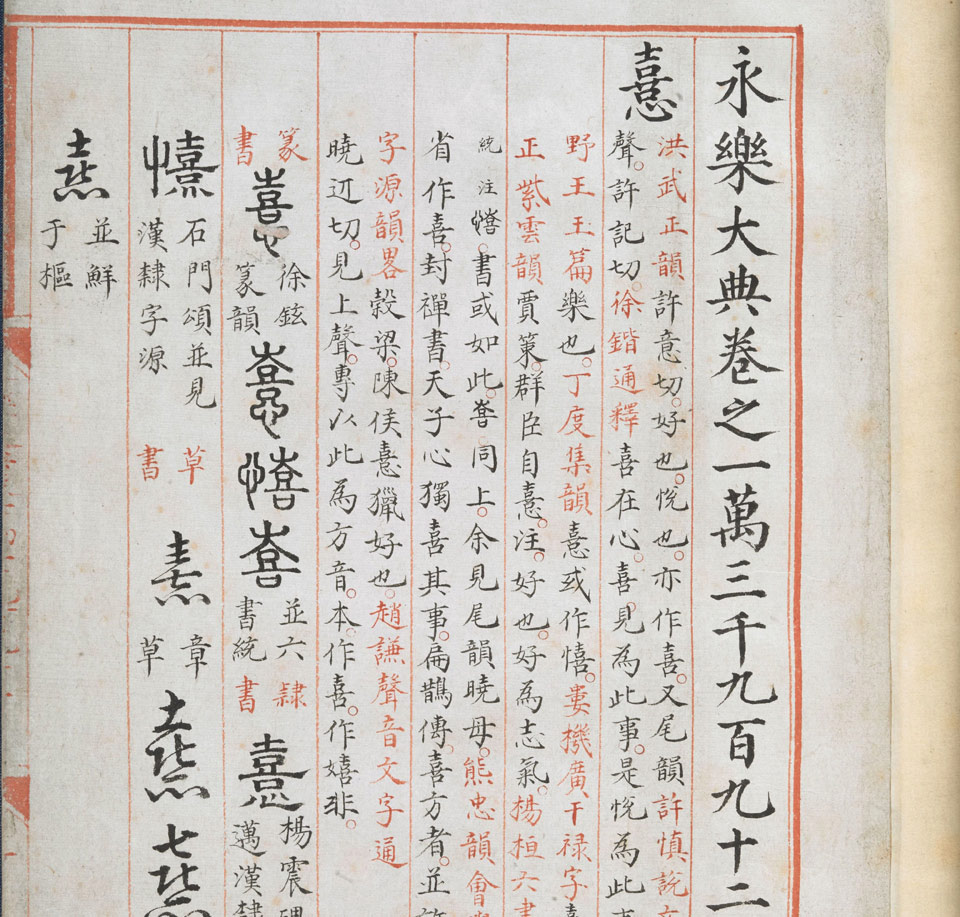 永樂大典卷之一萬三千九百九十二
憙
洪武正韻許意切。好也。悅也。亦作喜。又尾韻許慎說
聲。許記切。徐鍇通釋喜在心。喜見為此事。是悅為此
野王玉篇樂也。丁度集韻憙或作憘。婁機廣干祿字
正紫雲韻賈策。群臣自憙。注。好也。好為志氣。楊桓六書
統注憘。書或如此。同上。余見尾韻曉母。熊忠韻會
省作喜。封禪書。天子心獨喜其事。扁鵲傳。喜方者。並
字源韻畧穀梁。陳侯憙獵好也。趙謙聲音文字通
曉迈切。見上聲。專以此為方音。本作喜。作嬉非。
篆書
憙
徐鉉篆韻
憙
憘
並六書統
隸書
憙
楊震碑
邁漢隸
憘
石門頌並見漢隸字源
草書
憙
章草
憙
憙
憙
並鮮于樞